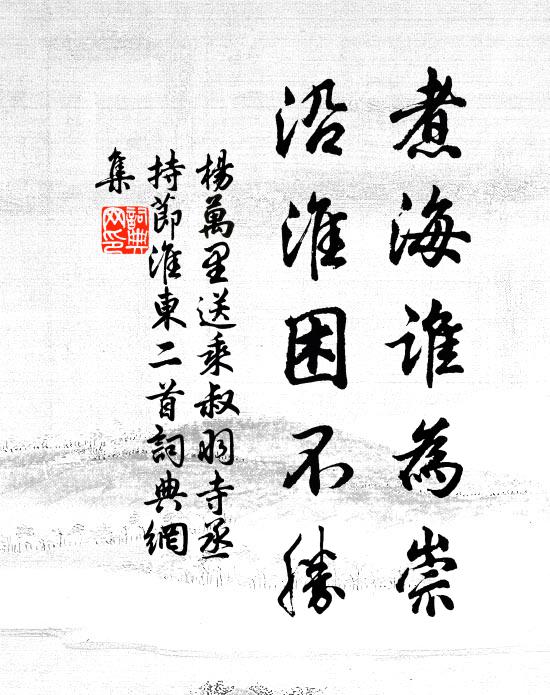 煮海誰為祟
沿淮困不勝
楊萬里送葉叔羽寺丞
持節淮東二首詞典網
集
詞典
网印